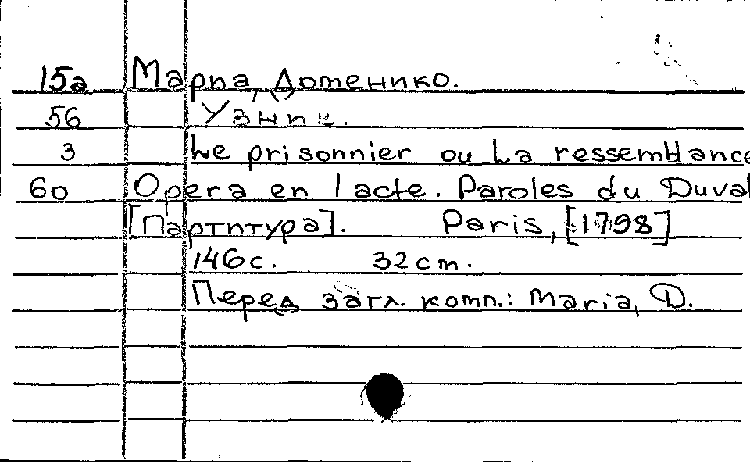 15а Мариа, Доменико.
56 Узник.
3 Le prisonnier ou La ressemblance
60 Opera en 1 acte. Paroles du Duval
[Партитура]. Paris, [1798]
146с. 32cm.
Перед загл. комп.: Maria, D.